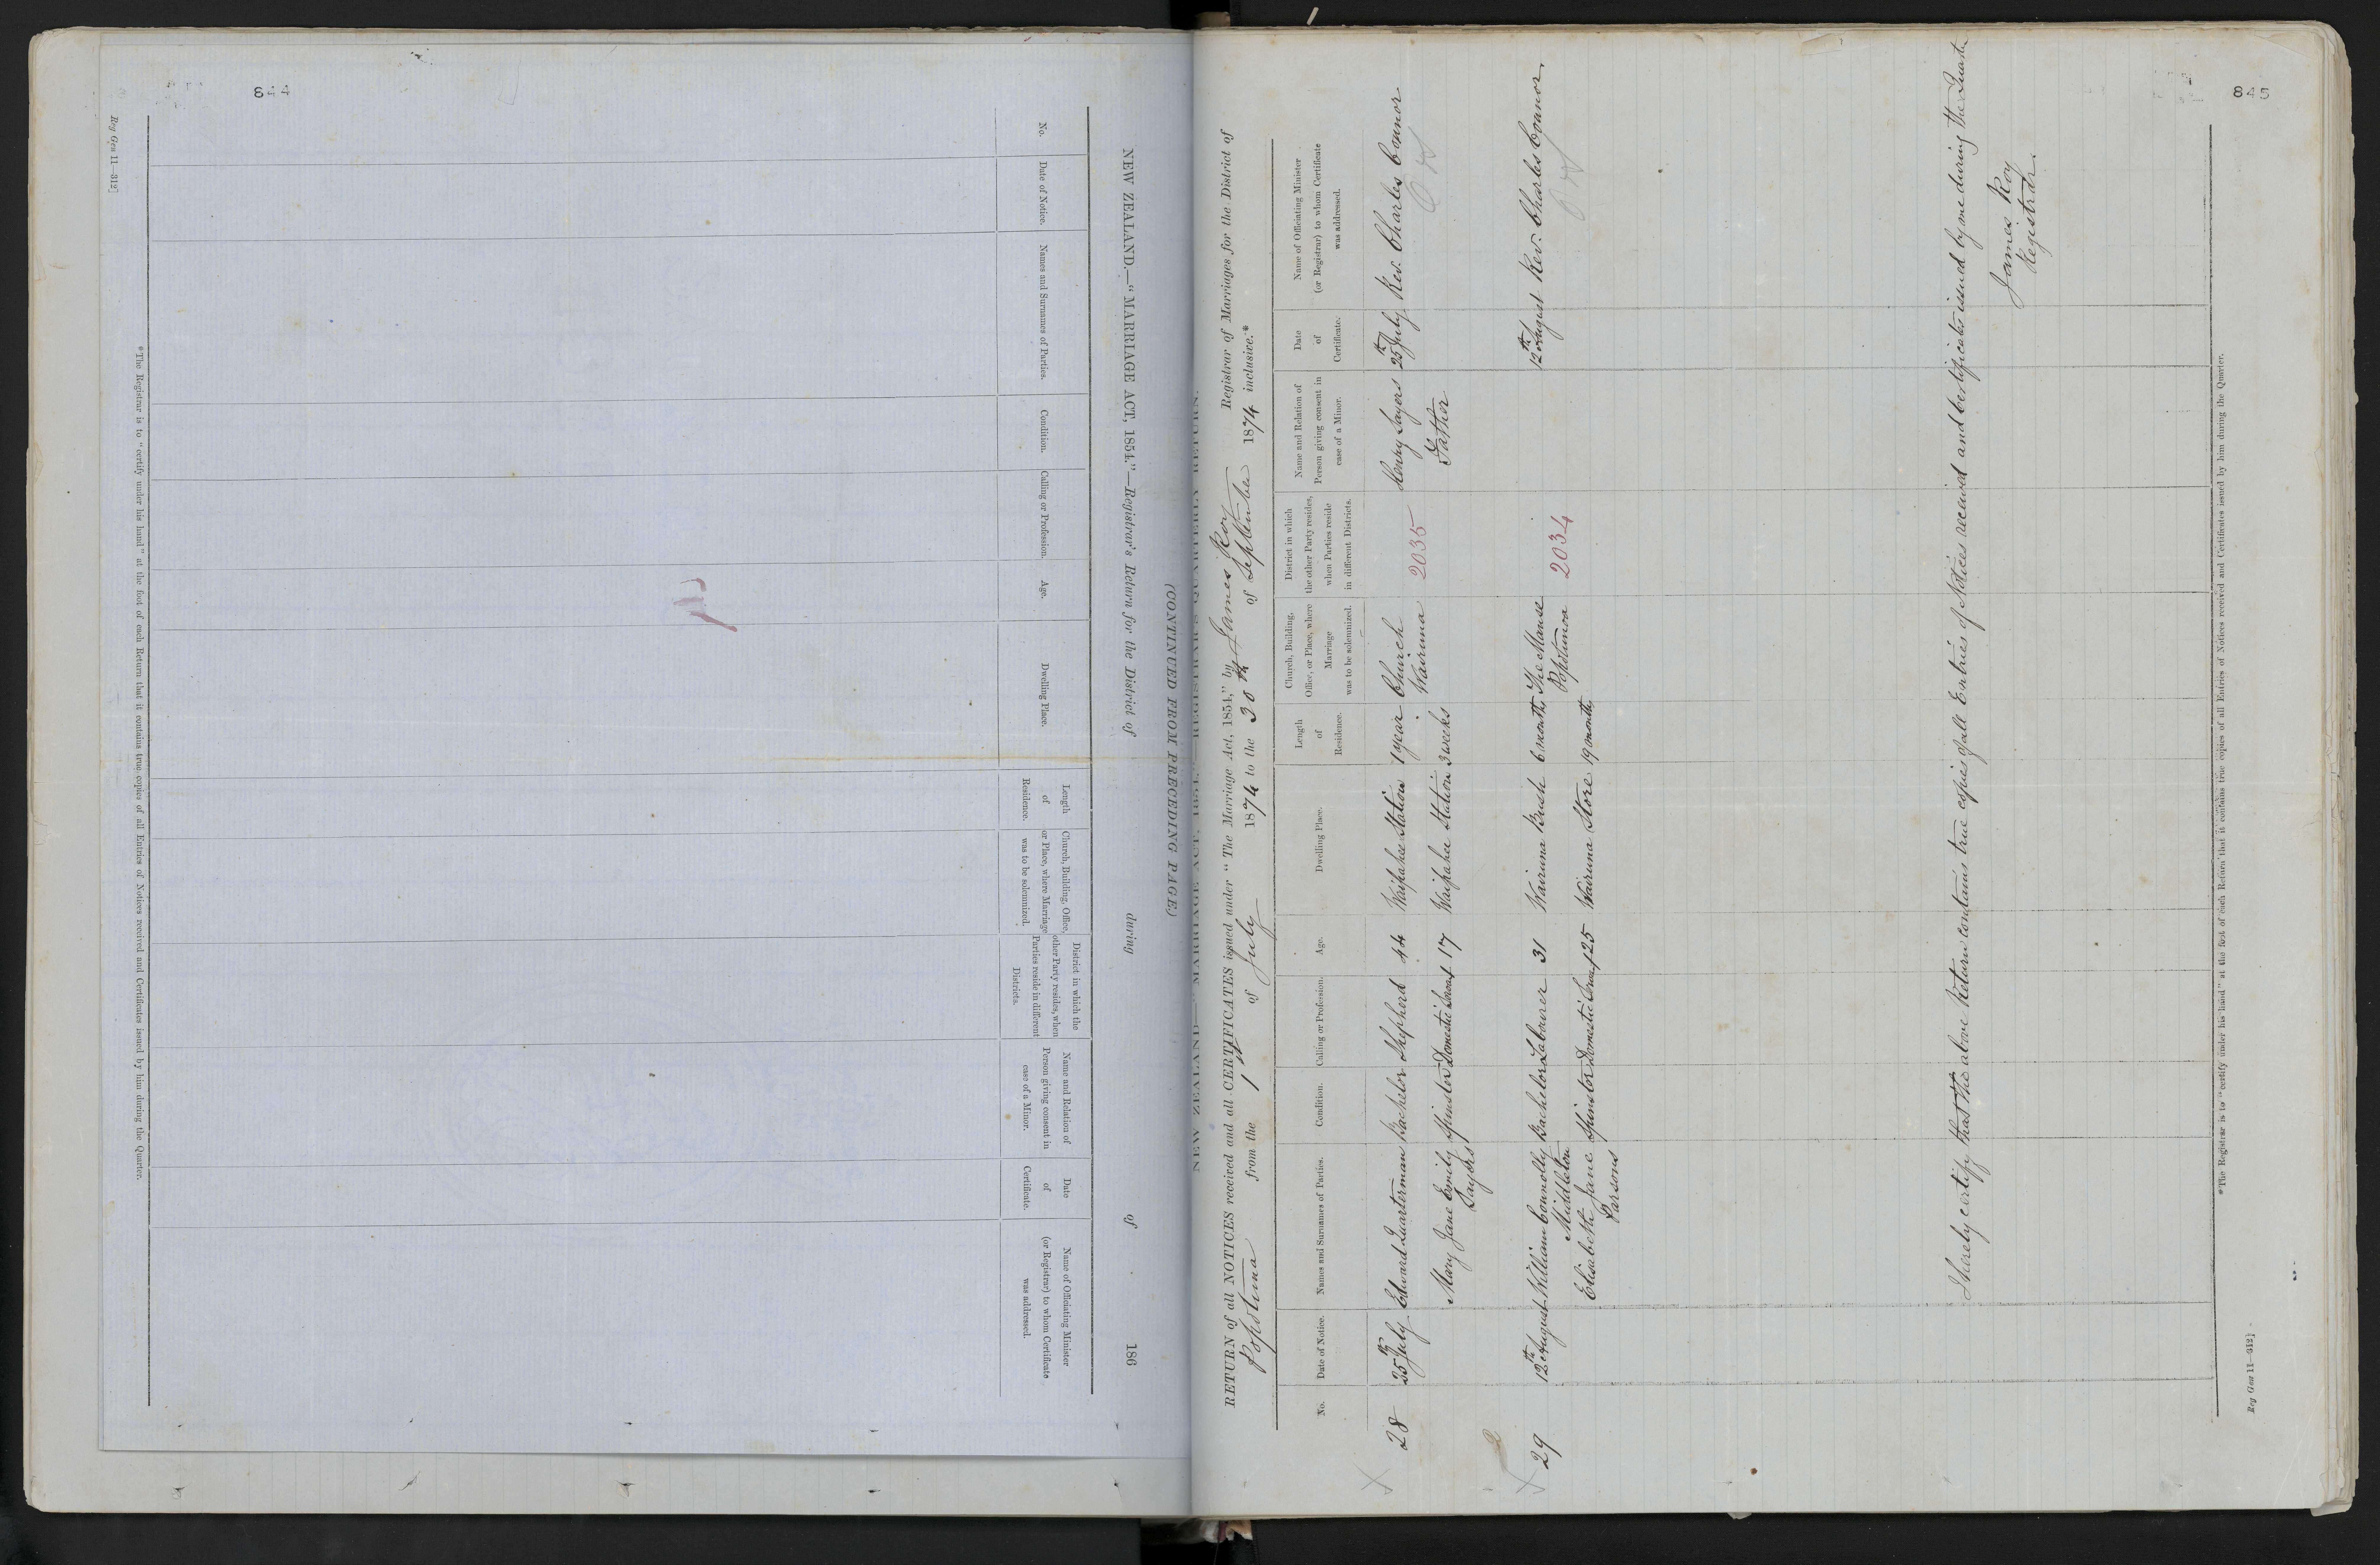 844
NEW ZEALAND.—"MARRIAGE ACT, 1854."—Registrar's Return for the District of during of 186
No.
Date of Notice.
Names and Surnames of Parties.
Condition.
Calling or Profession.
Age.
Dwelling Place.
Length
of
Residence.
Church, Building, Office,
or Place, where Marriage
was to be solemnized.
District in which the
other Party resides, when
Parties reside in different
Districts.
Name and Relation of
Person giving consent in
case of a Minor.
Date
of
Certificate.
Name of Officiating Minister
(or Registrar) to whom Certificate
was addressed.
*The Registrar is to "certify under his hand" at the foot of each Return that it contains true copies of all Entries of Notices received and Certificates issued by him during the Quarter.
Reg Gen 11—312]
(CONTINUED FROM PRECEDING PAGE.)
845
NEW ZEALAND.—"MARRIAGE ACT, 1854."—REGISTRAR'S QUARTERLY RETURN.
RETURN of all NOTICES received and all CERTIFICATES issued under "The Marriage Act, 1854," by James Roy Registrar of Marriages for the District of
Popotunoa from the 1st of July 1874 to the 30th of September 1874 inclusive.*
No.
Date of Notice.
Names and Surnames of Parties.
Condition.
Calling or Profession.
Age.
Dwelling Place.
Length
of
Residence.
Church, Building,
Office, or Place, where
Marriage
was to be solemnized.
District in which
the other Party resides,
when Parties reside
in different Districts.
Name and Relation of
Person giving consent in
case of a Minor.
Date
of
Certificate.
Name of Officiating Minister
(or Registrar) to whom Certificate
was addressed.
28 25th July Edward Quarterman Bachelor Shepherd 44 Waipahee Station 1 year Church Henry Sayers 25th July Rev. Charles Connor
Wairuna 2035
Mary Jane Emily Spinster Domestic Servt 17 Waipahee Station 3 weeks Father
Sayers
2
29 12th August William Connolly Bachelor Labourer 31 Wairuna Bush 6 months The Manse 12th August Rev. Charles Connor
Middleton Popotunoa 2034
Elisabeth Jane Spinster Domestic Servt 25 Wairuna Store 19 months
Parsons
I hereby certify that the above Return contains true copies of all Entries of Notices received and Certificates issued by me during the
James Roy
Registrar.
*The Registrar is to "certify under his hand" at the foot of each Return that it contains true copies of all Entries of Notices received and Certificates issued by him during the Quarter.
Reg Gen 11—312]